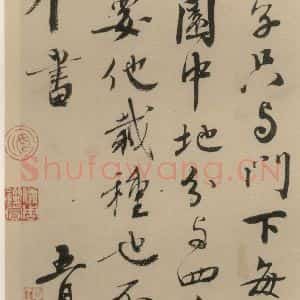 字只与門下每
園中地分与四
要他栽種也不
書
五月
Shufawang.CN